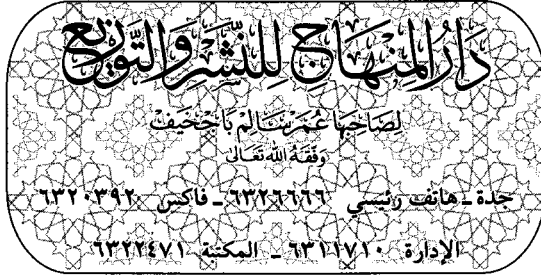 دَارُ المِنْهَاجِ لِلنَّشْرِ وَالتَّوْزِيعِ
لِصَاحِبِهَا عُمَرَ سَالِمْ بَاجْخَيْف
وَفَّقَهُ اللهُ تَعَالَى
جدة ـ هاتف رئيسي ٦٣٢٦٦٦٦ ـ فاكس ٦٣٢٠٣٩٢
الإدارة ٦٣١١٧١٠ ـ المكتبة ٦٣٢٢٤٧١